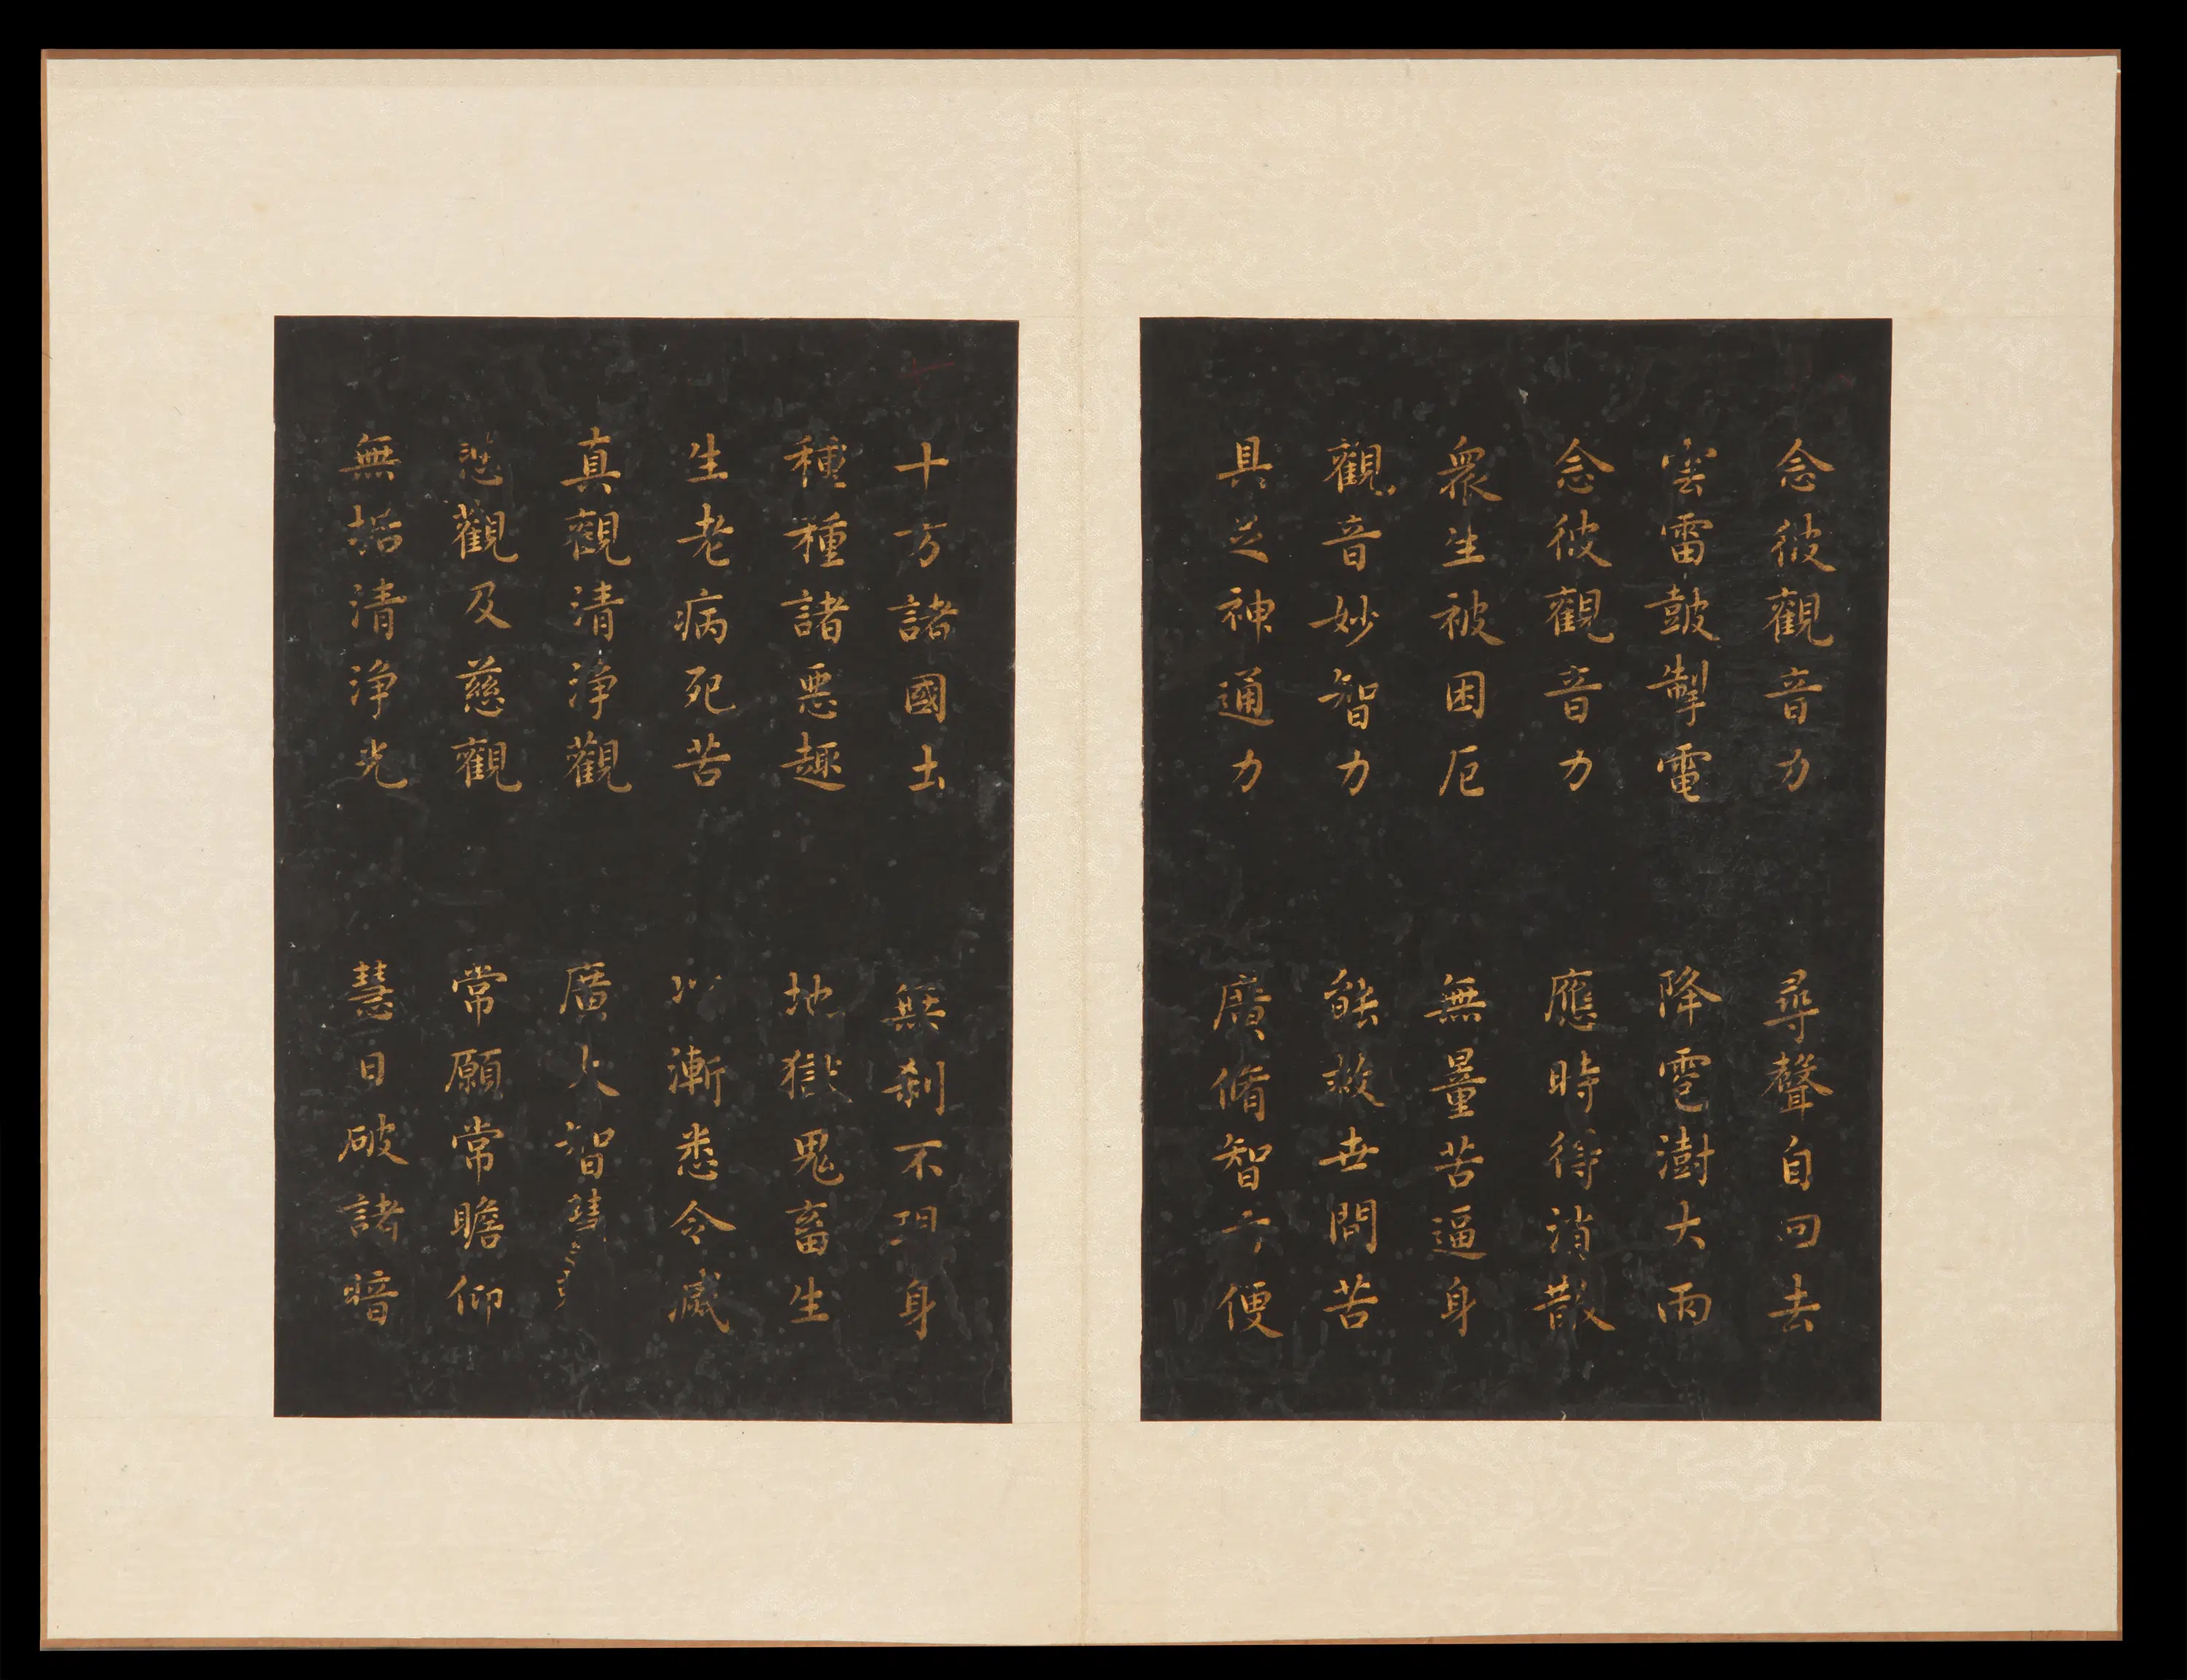 念彼觀音力　尋聲自回去
雲雷皷掣電　降雹澍大雨
念彼觀音力　應時得消散
衆生被困厄　無量苦逼身
觀音妙智力　能救世間苦
具足神通力　廣脩智方便
十方諸國土　無刹不現身
種種諸惡趣　地獄鬼畜生
生老病死苦　以漸悉令滅
真觀清淨觀　廣大智慧觀
悲觀及慈觀　常願常瞻仰
無垢清淨光　慧日破諸暗